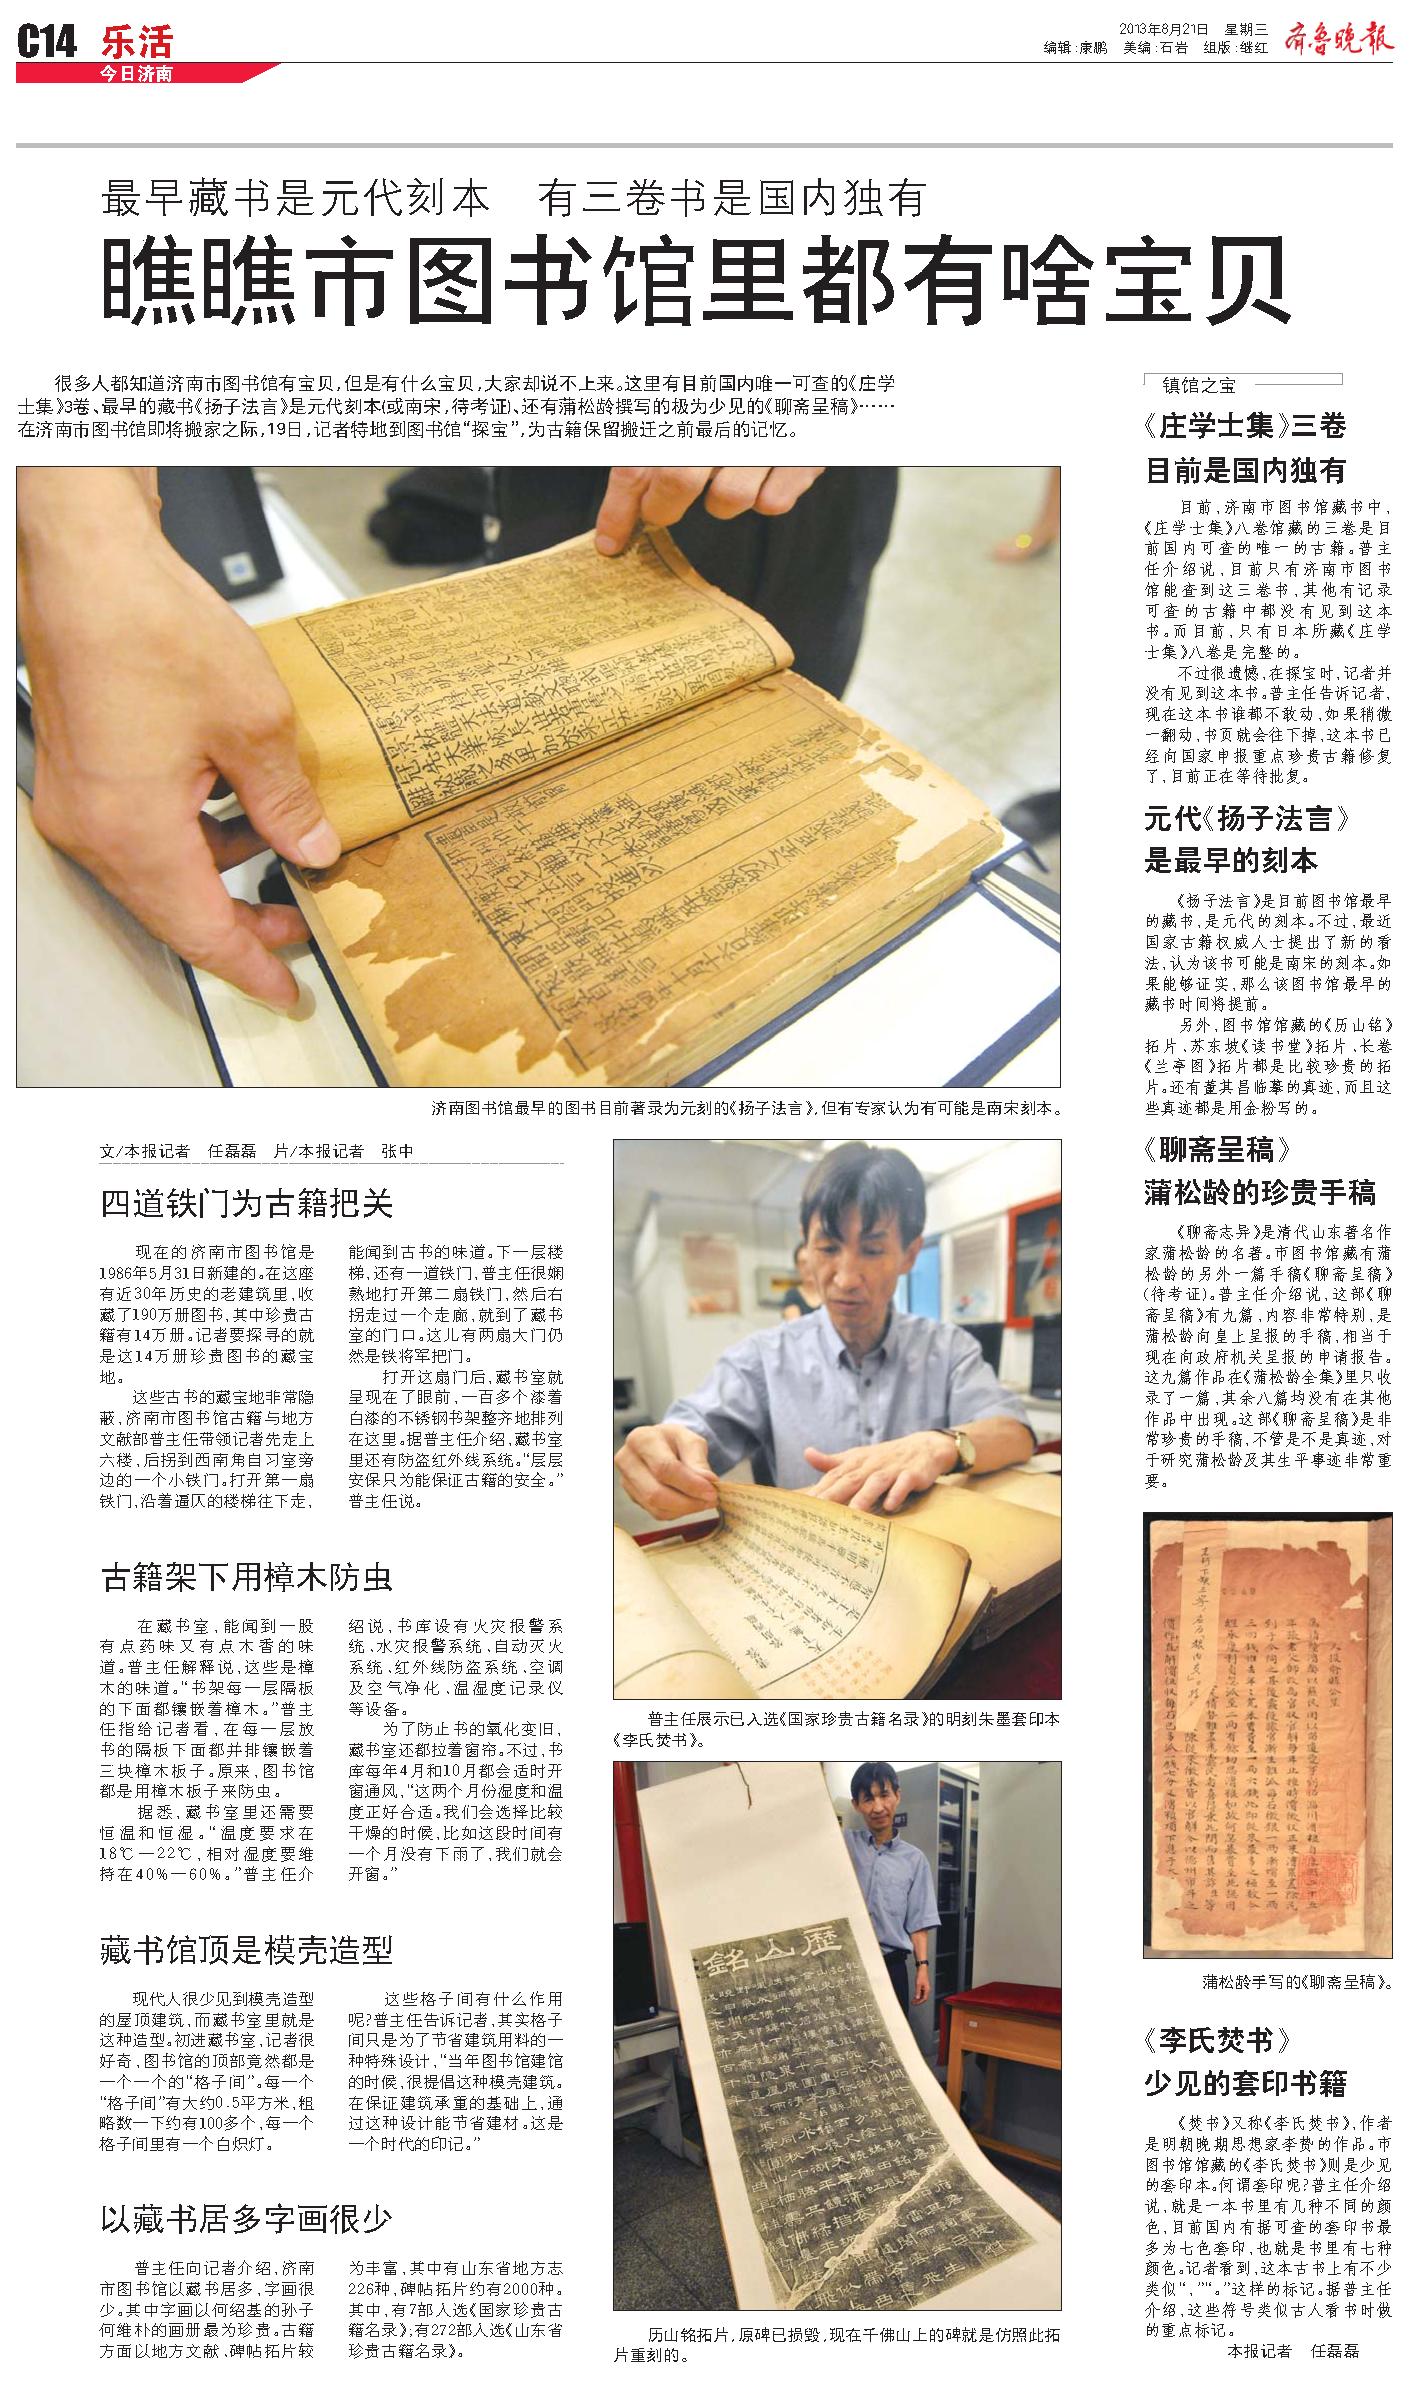 C14
乐活
今日济南
2013年8月21日 星期三
编辑:康鹏 美编:石岩 组版:继红
齐鲁晚报
最早藏书是元代刻本 有三卷书是国内独有
瞧瞧市图书馆里都有啥宝贝
很多人都知道济南市图书馆有宝贝,但是有什么宝贝,大家却说不上来。这里有目前国内唯一可查的《庄学
士集》3卷、最早的藏书《扬子法言》是元代刻本(或南宋,待考证)、还有蒲松龄撰写的极为少见的《聊斋呈稿》……
在济南市图书馆即将搬家之际,19日,记者特地到图书馆“探宝”,为古籍保留搬迁之前最后的记忆。
济南图书馆最早的图书目前著录为元刻的《扬子法言》,但有专家认为有可能是南宋刻本。
文/本报记者 任磊磊 片/本报记者 张中
四道铁门为古籍把关
现在的济南市图书馆是
1986年5月31日新建的。在这座
有近30年历史的老建筑里,收
藏了190万册图书,其中珍贵古
籍有14万册。记者要探寻的就
是这14万册珍贵图书的藏宝
地。
这些古书的藏宝地非常隐
蔽,济南市图书馆古籍与地方
文献部普主任带领记者先走上
六楼,后拐到西南角自习室旁
边的一个小铁门。打开第一扇
铁门,沿着逼仄的楼梯往下走,
能闻到古书的味道。下一层楼
梯,还有一道铁门,普主任很娴
熟地打开第二扇铁门,然后右
拐走过一个走廊,就到了藏书
室的门口。这儿有两扇大门仍
然是铁将军把门。
打开这扇门后,藏书室就
呈现在了眼前,一百多个漆着
白漆的不锈钢书架整齐地排列
在这里。据普主任介绍,藏书室
里还有防盗红外线系统。“层层
安保只为能保证古籍的安全。”
普主任说。
古籍架下用樟木防虫
在藏书室,能闻到一股
有点药味又有点木香的味
道。普主任解释说,这些是樟
木的味道。“书架每一层隔板
的下面都镶嵌着樟木。”普主
任指给记者看,在每一层放
书的隔板下面都并排镶嵌着
三块樟木板子。原来,图书馆
都是用樟木板子来防虫。
据悉,藏书室里还需要
恒温和恒湿。“温度要求在
18℃—22℃,相对湿度要维
持在40%—60%。”普主任介
绍说,书库设有火灾报警系
统、水灾报警系统、自动灭火
系统、红外线防盗系统、空调
及空气净化、温湿度记录仪
等设备。
为了防止书的氧化变旧,
藏书室还都拉着窗帘。不过,书
库每年4月和10月都会适时开
窗通风,“这两个月份湿度和温
度正好合适。我们会选择比较
干燥的时候,比如这段时间有
一个月没有下雨了,我们就会
开窗。”
藏书馆顶是模壳造型
现代人很少见到模壳造型
的屋顶建筑,而藏书室里就是
这种造型。初进藏书室,记者很
好奇,图书馆的顶部竟然都是
一个一个的“格子间”。每一个
“格子间”有大约0.5平方米,粗
略数一下约有100多个,每一个
格子间里有一个白炽灯。
这些格子间有什么作用
呢?普主任告诉记者,其实格子
间只是为了节省建筑用料的一
种特殊设计,“当年图书馆建馆
的时候,很提倡这种模壳建筑。
在保证建筑承重的基础上,通
过这种设计能节省建材。这是
一个时代的印记。”
以藏书居多字画很少
普主任向记者介绍,济南
市图书馆以藏书居多,字画很
少。其中字画以何绍基的孙子
何维朴的画册最为珍贵。古籍
方面以地方文献、碑帖拓片较
为丰富,其中有山东省地方志
226种,碑帖拓片约有2000种。
其中,有7部入选《国家珍贵古
籍名录》;有272部入选《山东省
珍贵古籍名录》。
普主任展示已入选《国家珍贵古籍名录》的明刻朱墨套印本
《李氏焚书》。
歷山銘
历山铭拓片,原碑已损毁,现在千佛山上的碑就是仿照此拓
片重刻的。
镇馆之宝
《庄学士集》三卷
目前是国内独有
目前,济南市图书馆藏书中,
《庄学士集》八卷馆藏的三卷是目
前国内可查的唯一的古籍。普主
任介绍说,目前只有济南市图书
馆能查到这三卷书,其他有记录
可查的古籍中都没有见到这本
书。而目前,只有日本所藏《庄学
士集》八卷是完整的。
不过很遗憾,在探宝时,记者并
没有见到这本书。普主任告诉记者,
现在这本书谁都不敢动,如果稍微
一翻动,书页就会往下掉,这本书已
经向国家申报重点珍贵古籍修复
了,目前正在等待批复。
元代《扬子法言》
是最早的刻本
《扬子法言》是目前图书馆最早
的藏书,是元代的刻本。不过,最近
国家古籍权威人士提出了新的看
法,认为该书可能是南宋的刻本。如
果能够证实,那么该图书馆最早的
藏书时间将提前。
另外,图书馆馆藏的《历山铭》
拓片、苏东坡《读书堂》拓片、长卷
《兰亭图》拓片都是比较珍贵的拓
片。还有董其昌临摹的真迹,而且这
些真迹都是用金粉写的。
《聊斋呈稿》
蒲松龄的珍贵手稿
《聊斋志异》是清代山东著名作
家蒲松龄的名著。市图书馆藏有蒲
松龄的另外一篇手稿《聊斋呈稿》
(待考证)。普主任介绍说,这部《聊
斋呈稿》有九篇,内容非常特别,是
蒲松龄向皇上呈报的手稿,相当于
现在向政府机关呈报的申请报告。
这九篇作品在《蒲松龄全集》里只收
录了一篇,其余八篇均没有在其他
作品中出现。这部《聊斋呈稿》是非
常珍贵的手稿,不管是不是真迹,对
于研究蒲松龄及其生平事迹非常重
要。
蒲松龄手写的《聊斋呈稿》。
《李氏焚书》
少见的套印书籍
《焚书》又称《李氏焚书》,作者
是明朝晚期思想家李贽的作品。市
图书馆馆藏的《李氏焚书》则是少见
的套印本。何谓套印呢?普主任介绍
说,就是一本书里有几种不同的颜
色,目前国内有据可查的套印书最
多为七色套印,也就是书里有七种
颜色。记者看到,这本古书上有不少
类似“,”“。”这样的标记。据普主任
介绍,这些符号类似古人看书时做
的重点标记。
本报记者 任磊磊